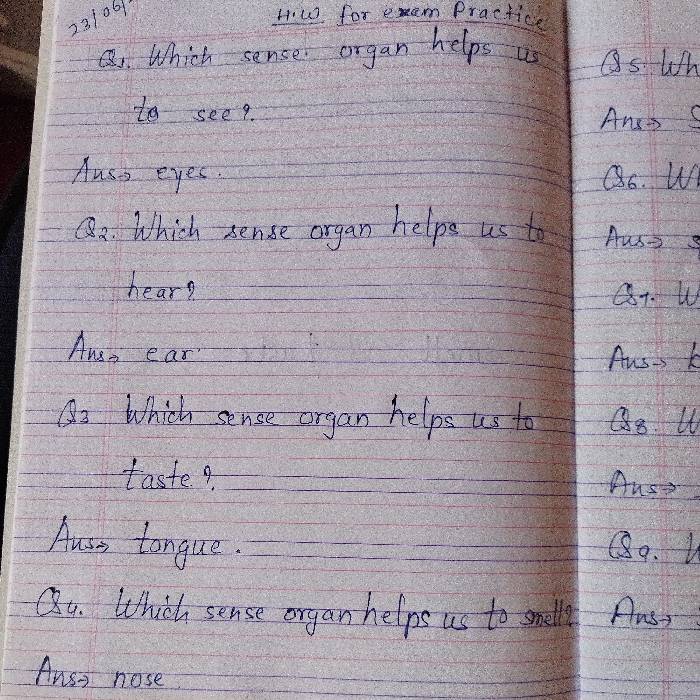 23/06/
H.W for exam Practice
Q1. Which sense organ helps us
to see?
Ans→ eyes.
Q2. Which sense organ helps us to
hear?
Ans→ ear.
Q3 Which sense organ helps us to
taste?
Ans→ tongue.
Q4. Which sense organ helps us to smell?
Ans→ nose
Q5. Wh
Ans→
Q6. Wh
Ans→
Q7. W
Ans→
Q8. W
Ans→
Q9. W
Ans→